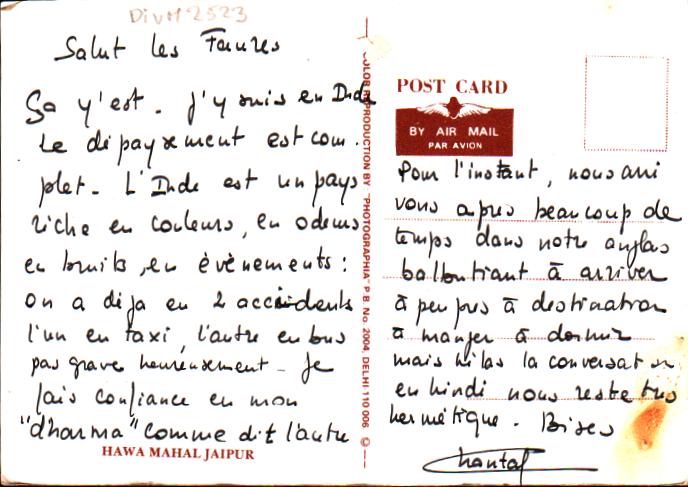 DivM 2523
Salut les Faures
Ça y'est. J'y suis en Inde
Le dépaysement est com-
plet. L'Inde est un pays
riche en couleurs, en odeurs
en bruits, en évènements :
on a déja eu 2 accidents
l'un en taxi, l'autre en bus
pas grave heureusement. Je
fais confiance en mon
"dharma" comme dit l'autre
HAWA MAHAL JAIPUR
COLOR REPRODUCTION BY "PHOTOGRAPHIA" P. B. No. 2004, DELHI 110 006 ©
POST CARD
BY AIR MAIL
PAR AVION
Pour l'instant, nous arri
vons apres beaucoup de
temps dans notre anglais
balbutiant à arriver
à peu près à destination
à manger à dormir
mais hélas la conversation
en hindi nous reste très
hermétique. Bises
Chantal